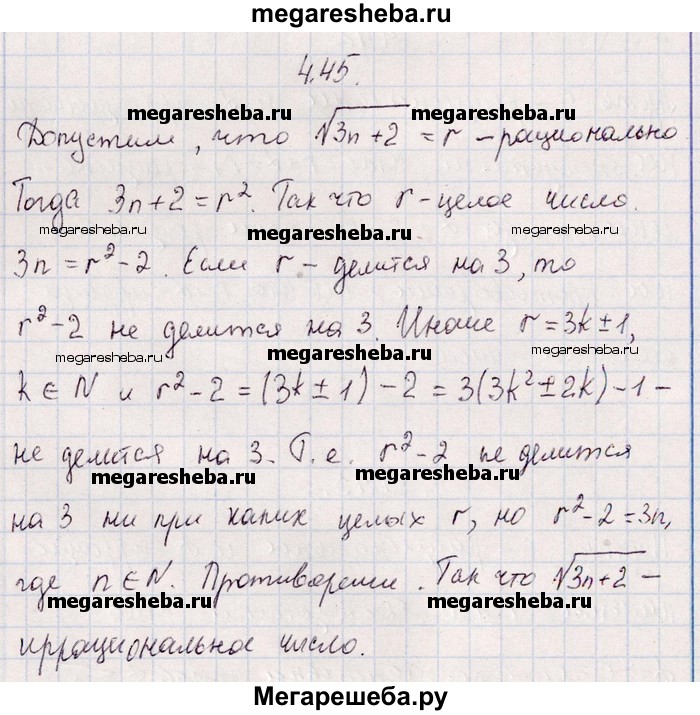 megaresheba.ru
4.45.
megaresheba.ru megaresheba.ru
Допустим, что √3n+2 = r – рационально
Тогда 3n+2 = r². Так что r – целое число.
megaresheba.ru megaresheba.ru megaresheba.ru
3n = r² – 2. Если r – делится на 3, то
r² – 2 не делится на 3. Иначе r = 3k ± 1,
megaresheba.ru megaresheba.ru megaresheba.ru
k ∈ N и r² – 2 = (3k ± 1) – 2 = 3(3k² ± 2k) – 1 –
не делится на 3. Т.е. r² – 2 не делится
megaresheba.ru megaresheba.ru
на 3 ни при каких целых r, но r² – 2 = 3n,
где n ∈ N. Противоречие. Так что √3n+2 –
megaresheba.ru megaresheba.ru
иррациональное число.
Мегарешеба.ру